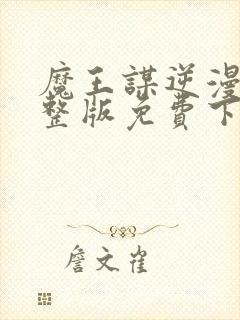 魔王謀逆漫
整版免費下
詹文雀